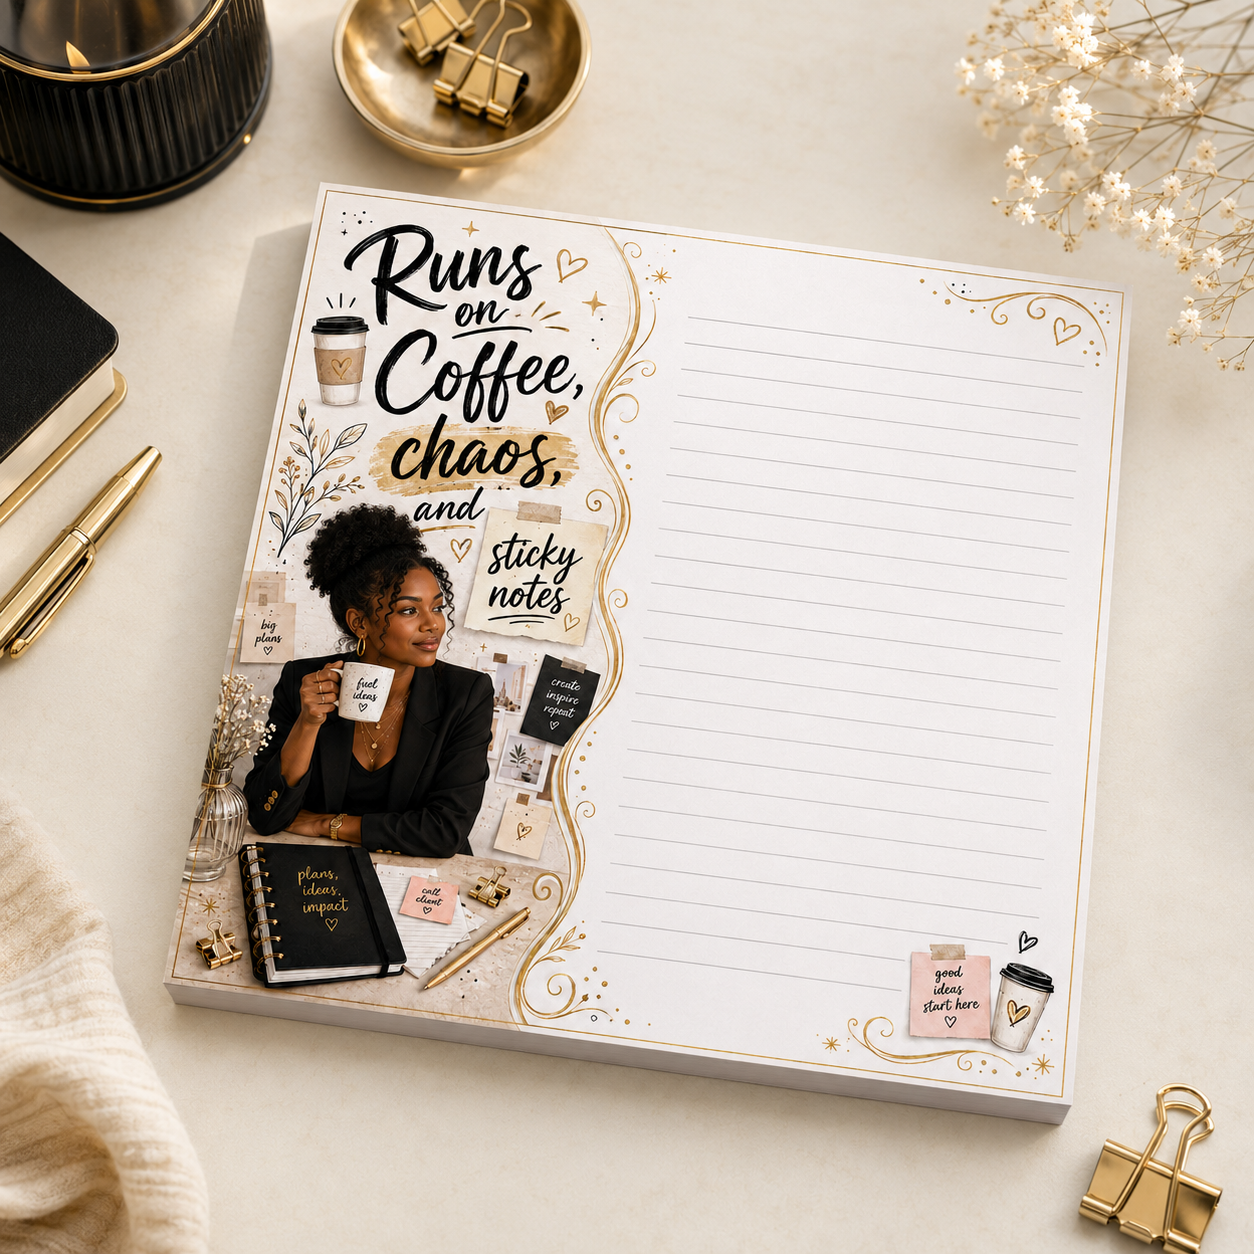 Runs
on
Coffee,
chaos,
and
sticky
notes
big
plans
fuel
ideas
create
inspire
repeat
plans,
ideas,
impact
call
client
good
ideas
start here